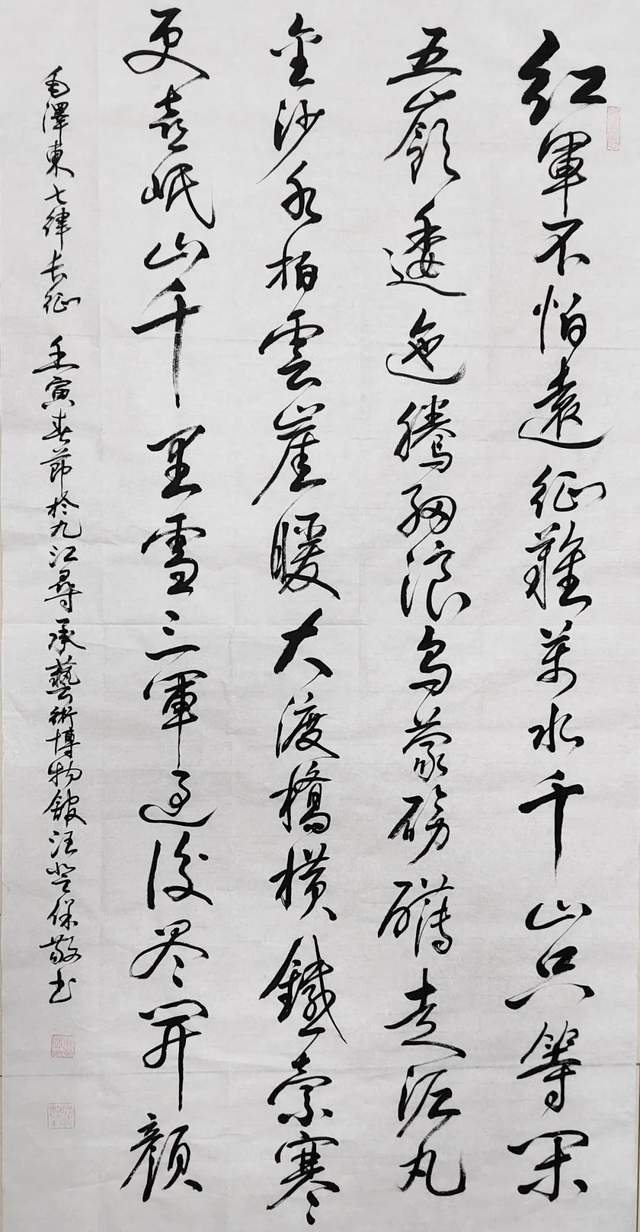 紅軍不怕遠征難萬水千山只等閑
五嶺逶迤騰細浪烏蒙磅礴走泥丸
金沙水拍雲崖暖大渡橋橫鐵索寒
更喜岷山千里雪三軍過後盡開顏
毛澤東七律長征 壬寅春節於九江尋承藝術博物館汪登保敬書